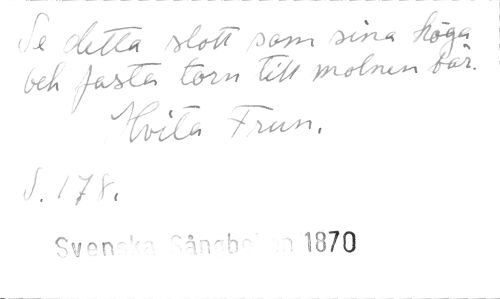 Se detta slott som sina höga
och fasta torn till molnen bär.
Hvita Frun.
S. 178.
Svenska Sångboken 1870